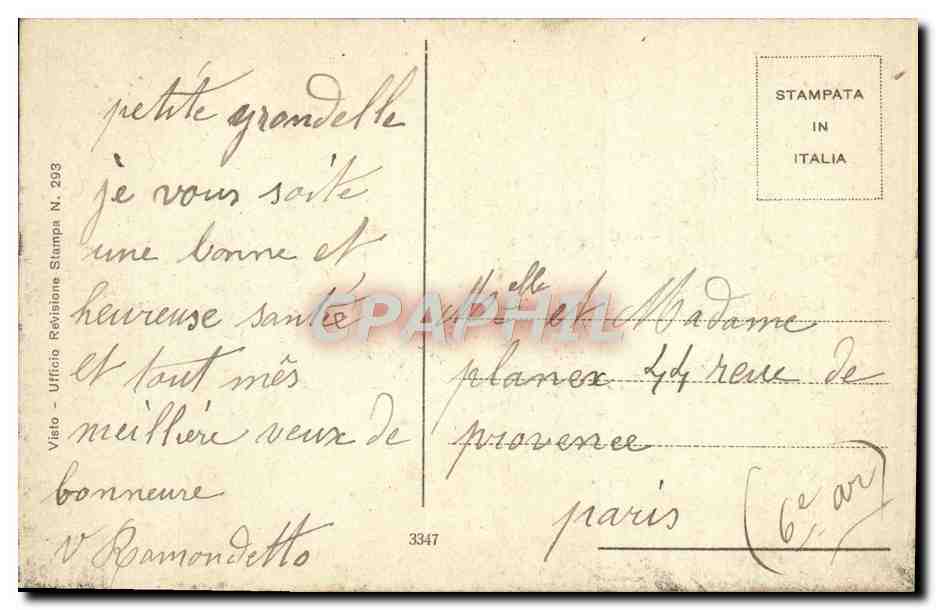 petite grondelle
je vous soite
une bonne et
heureuse santé
et tout mês
meillière veux de
bonneure
v Ramondetto
Visto - Ufficio Revisione Stampa N. 293
3347
STAMPATA
IN
ITALIA
Melle et Madame
planex 44 reue de
provence
paris
(6e ar)
CPAPHIL